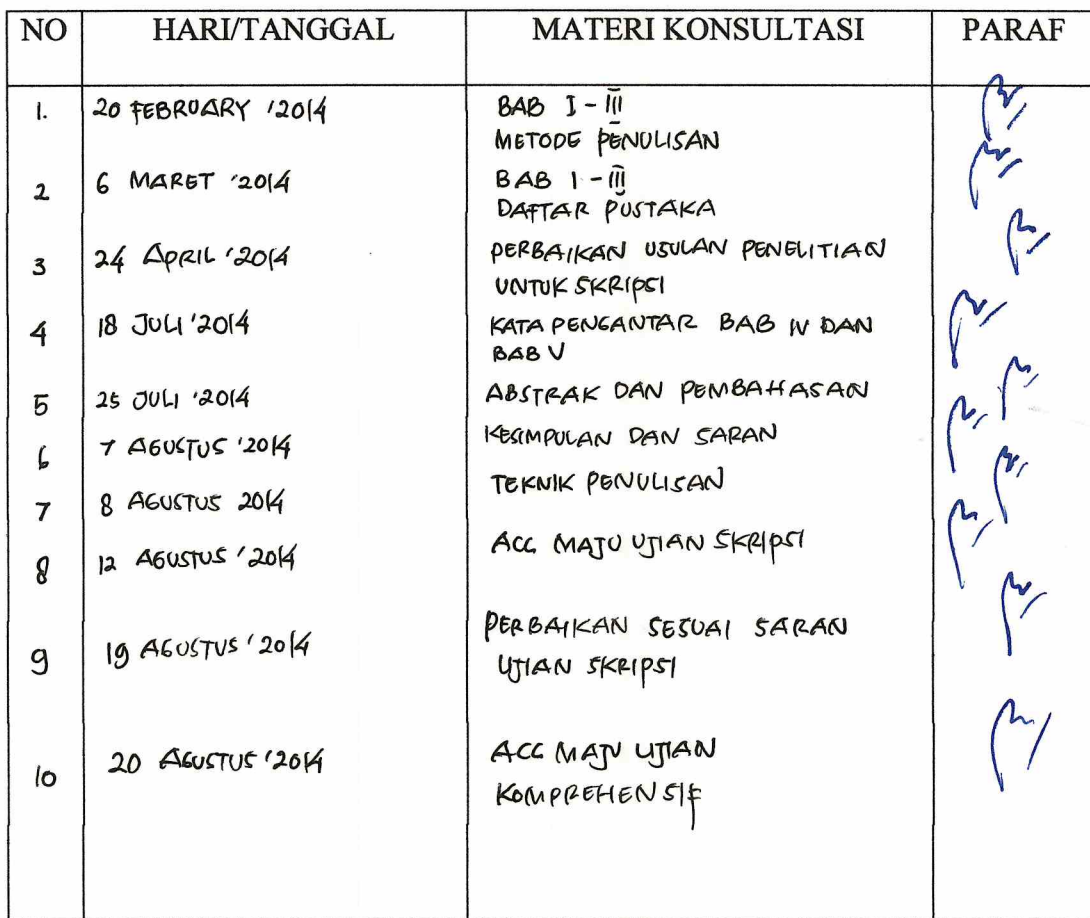 NO HARI/TANGGAL MATERI KONSULTASI PARAF
1. 20 FEBRUARY '2014 BAB I - III
METODE PENULISAN
2 6 MARET '2014 BAB I - III
DAFTAR PUSTAKA
3 24 APRIL '2014 PERBAIKAN USULAN PENELITIAN
UNTUK SKRIPSI
4 18 JULI '2014 KATA PENGANTAR BAB IV DAN
BAB V
5 25 JULI '2014 ABSTRAK DAN PEMBAHASAN
6 7 AGUSTUS '2014 KESIMPULAN DAN SARAN
7 8 AGUSTUS 2014 TEKNIK PENULISAN
8 12 AGUSTUS '2014 ACC MAJU UJIAN SKRIPSI
9 19 AGUSTUS '2014 PERBAIKAN SESUAI SARAN
UJIAN SKRIPSI
10 20 AGUSTUS '2014 ACC MAJU UJIAN
KOMPREHENSIF